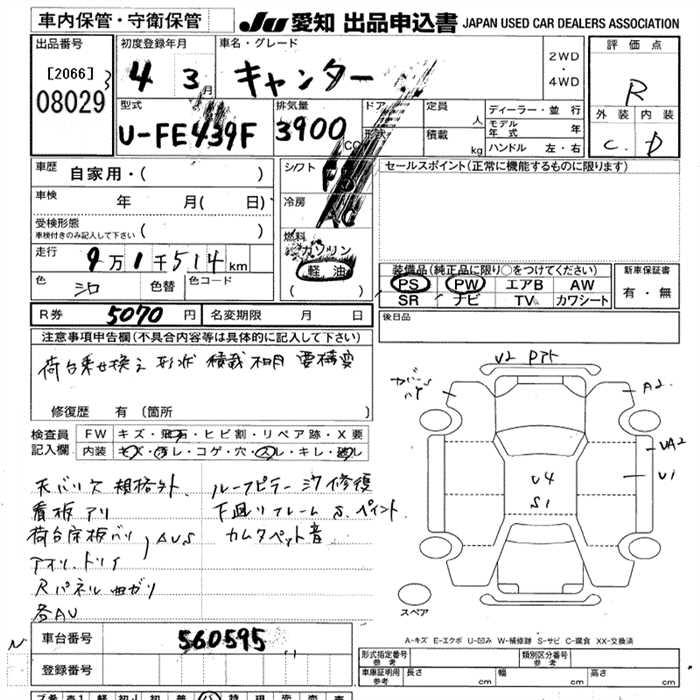 車内保管・守衛保管
JU 愛知 出品申込書 JAPAN USED CAR DEALERS ASSOCIATION
出品番号
[2066]
08029
初度登録年月
4 3月
車名・グレード
キャンター
2WD
・
4WD
評価点
R
外装 内装
C D
型式
U-FE439F
排気量
3900
CC
ドア
形状
定員
人
積載
kg
ディーラー・並行
モデル年式 年
ハンドル 左・右
車歴
自家用・( )
車検
年 月( 日)
受検形態
車検付きのみ記入して下さい ( )
走行
9万1千514km
色
シロ
色替
色コード
シフト
F5
冷房
AC
燃料
ガソリン
軽油
( )
セールスポイント(正常に機能するものに限ります)
装備品(純正品に限り○をつけてください)
PS PW エアB AW
SR ナビ TV カワシート
新車保証書
有・無
R券 5070円
名変期限 月 日
後日品
注意事項申告欄(不具合内容等は具体的に記入して下さい)
荷台乗せ換え 形状 積載 不明 要構変
修復歴 有 (箇所 )
検査員
記入欄
FW キズ・飛石・ヒビ割・リペア跡・X要
内装 キズ・汚レ・コゲ・穴・スレ・キレ・破レ
天バリ欠 規格外
ルーフピラー 修復
看板アリ
下回リフレーム S.ペイント
荷台床板バリ
AUS
カムタペット音
Rパネル曲ガリ
各AU
V2
A2
UA2
U1
U4
S1
スペア
A-キズ E-エクボ U-凹み W-補修跡 S-サビ C-腐食 XX-交換済
車台番号
560595
登録番号
形式指定番号
参考
類別区分番号
参考
車庫証明用
参考
長さ cm
幅 cm
高さ cm